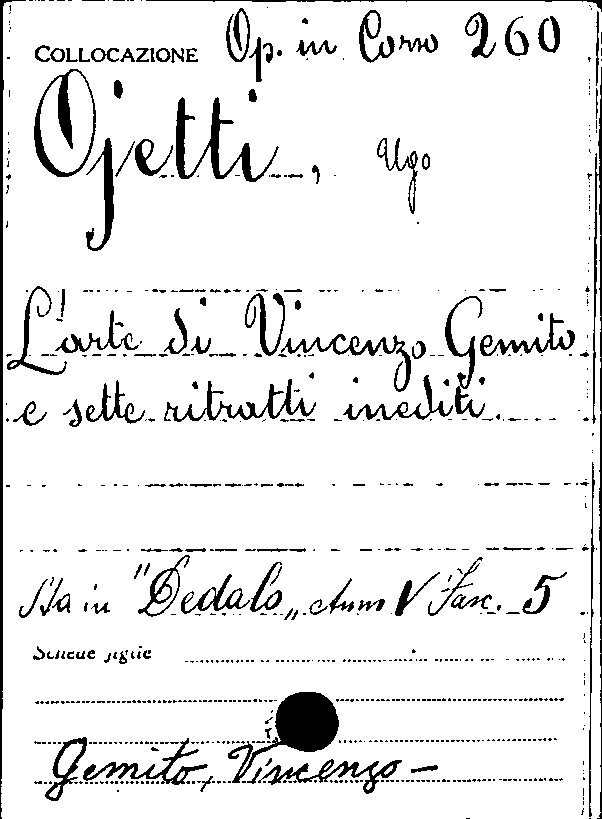 COLLOCAZIONE Op. in Corso 260
Ojetti, Ugo
L'arte di Vincenzo Gemito
e sette ritratti inediti.
Sta in "Dedalo„ Anno V Fasc. 5
Schede figlie
Gemito, Vincenzo -